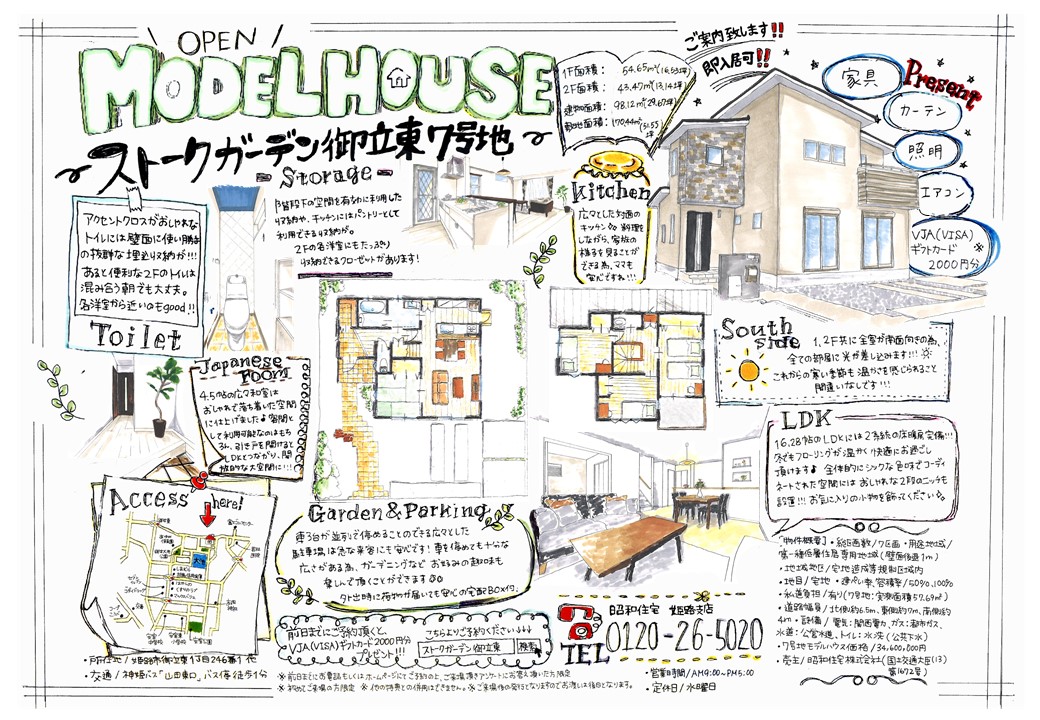 OPEN
MODEL HOUSE
ストークガーデン御立東7号地
ご案内致します!!
即入居可!!
1F面積: 54.65㎡(16.53坪)
2F面積: 43.47㎡(13.14坪)
建物面積: 98.12㎡(29.67坪)
敷地面積: 170.44㎡(51.55坪)
Present
家具
カーテン
照明
エアコン
VJA(VISA)
ギフトカード
2000円分
※
Storage
階段下の空間を有効に利用した
収納や、キッチンにはパントリーとして
利用できる収納が。
2Fの各洋室にもたっぷり
収納できるクローゼットがあります!
Kitchen
広々とした対面の
キッチン 料理
しながら、家族の
様子を見ることが
できる為、ママも
安心ですね!!!
アクセントクロスがおしゃれな
トイレには壁面に使い勝手
の抜群な埋込収納が!!!
あると便利な2Fのトイレは
混み合う朝でも大丈夫。
各洋室から近いのもgood!!
Toilet
Japanese
room
4.5帖の広々和室は
おしゃれで落ち着いた空間
に仕上げました♪客間と
して利用可能なのはもち
ろん、引き戸を開けると
LDKとつながり、開
放的な大空間に!!!
South
side
1,2F共に全室が南面向きの為、
全ての部屋に光が差し込みます!!!
これからの寒い季節も温かさを感じられること
間違いなしです!!!
LDK
16.28帖のLDKには2系統の床暖房完備!!!
冬でもフローリングが温かく快適にお過ごし
頂けます♪ 全体的にシックな色味でコーディ
ネートされた空間にはおしゃれな2段のニッチも
設置!!! お気に入りの小物を飾ってください。
Access
here!
Garden&Parking
車3台が並列で停めることのできる広々とした
駐車場は急な来客にも安心です!車を停めても十分な
広さがある為、ガーデニングなど お好みの趣味も
楽しんで頂くことができます
外出時に荷物が届いても安心の宅配BOX付。
・所在地/姫路市御立東1丁目246番1 他
・交通/神姫バス「山田東口」バス停徒歩1分
前日までにご予約頂くと、
VJA(VISA)ギフトカード2000円分
プレゼント!!!
こちらよりご予約ください↓↓↓
ストークガーデン御立東
検索
TEL
昭和住宅 姫路支店
0120-26-5020
・営業時間/AM9:00~PM5:00
・定休日/水曜日
「物件概要」・総区画数/7区画・用途地域/
第一種低層住居専用地域(壁面後退1m)
・地域地区/宅地造成等規制区域内
・地目/宅地 ・建ぺい率,容積率/50%,100%
・私道負担/有り(7号地:実測面積57.69㎡)
・道路幅員/北側約6.5m、東側約7m、南側約
4m ・設備/電気:関西電力、ガス:都市ガス、
水道:公営水道、トイレ:水洗(公共下水)
・7号地モデルハウス価格/34,600,000円
・売主/昭和住宅株式会社(国土交通大臣(13)
第1672号)